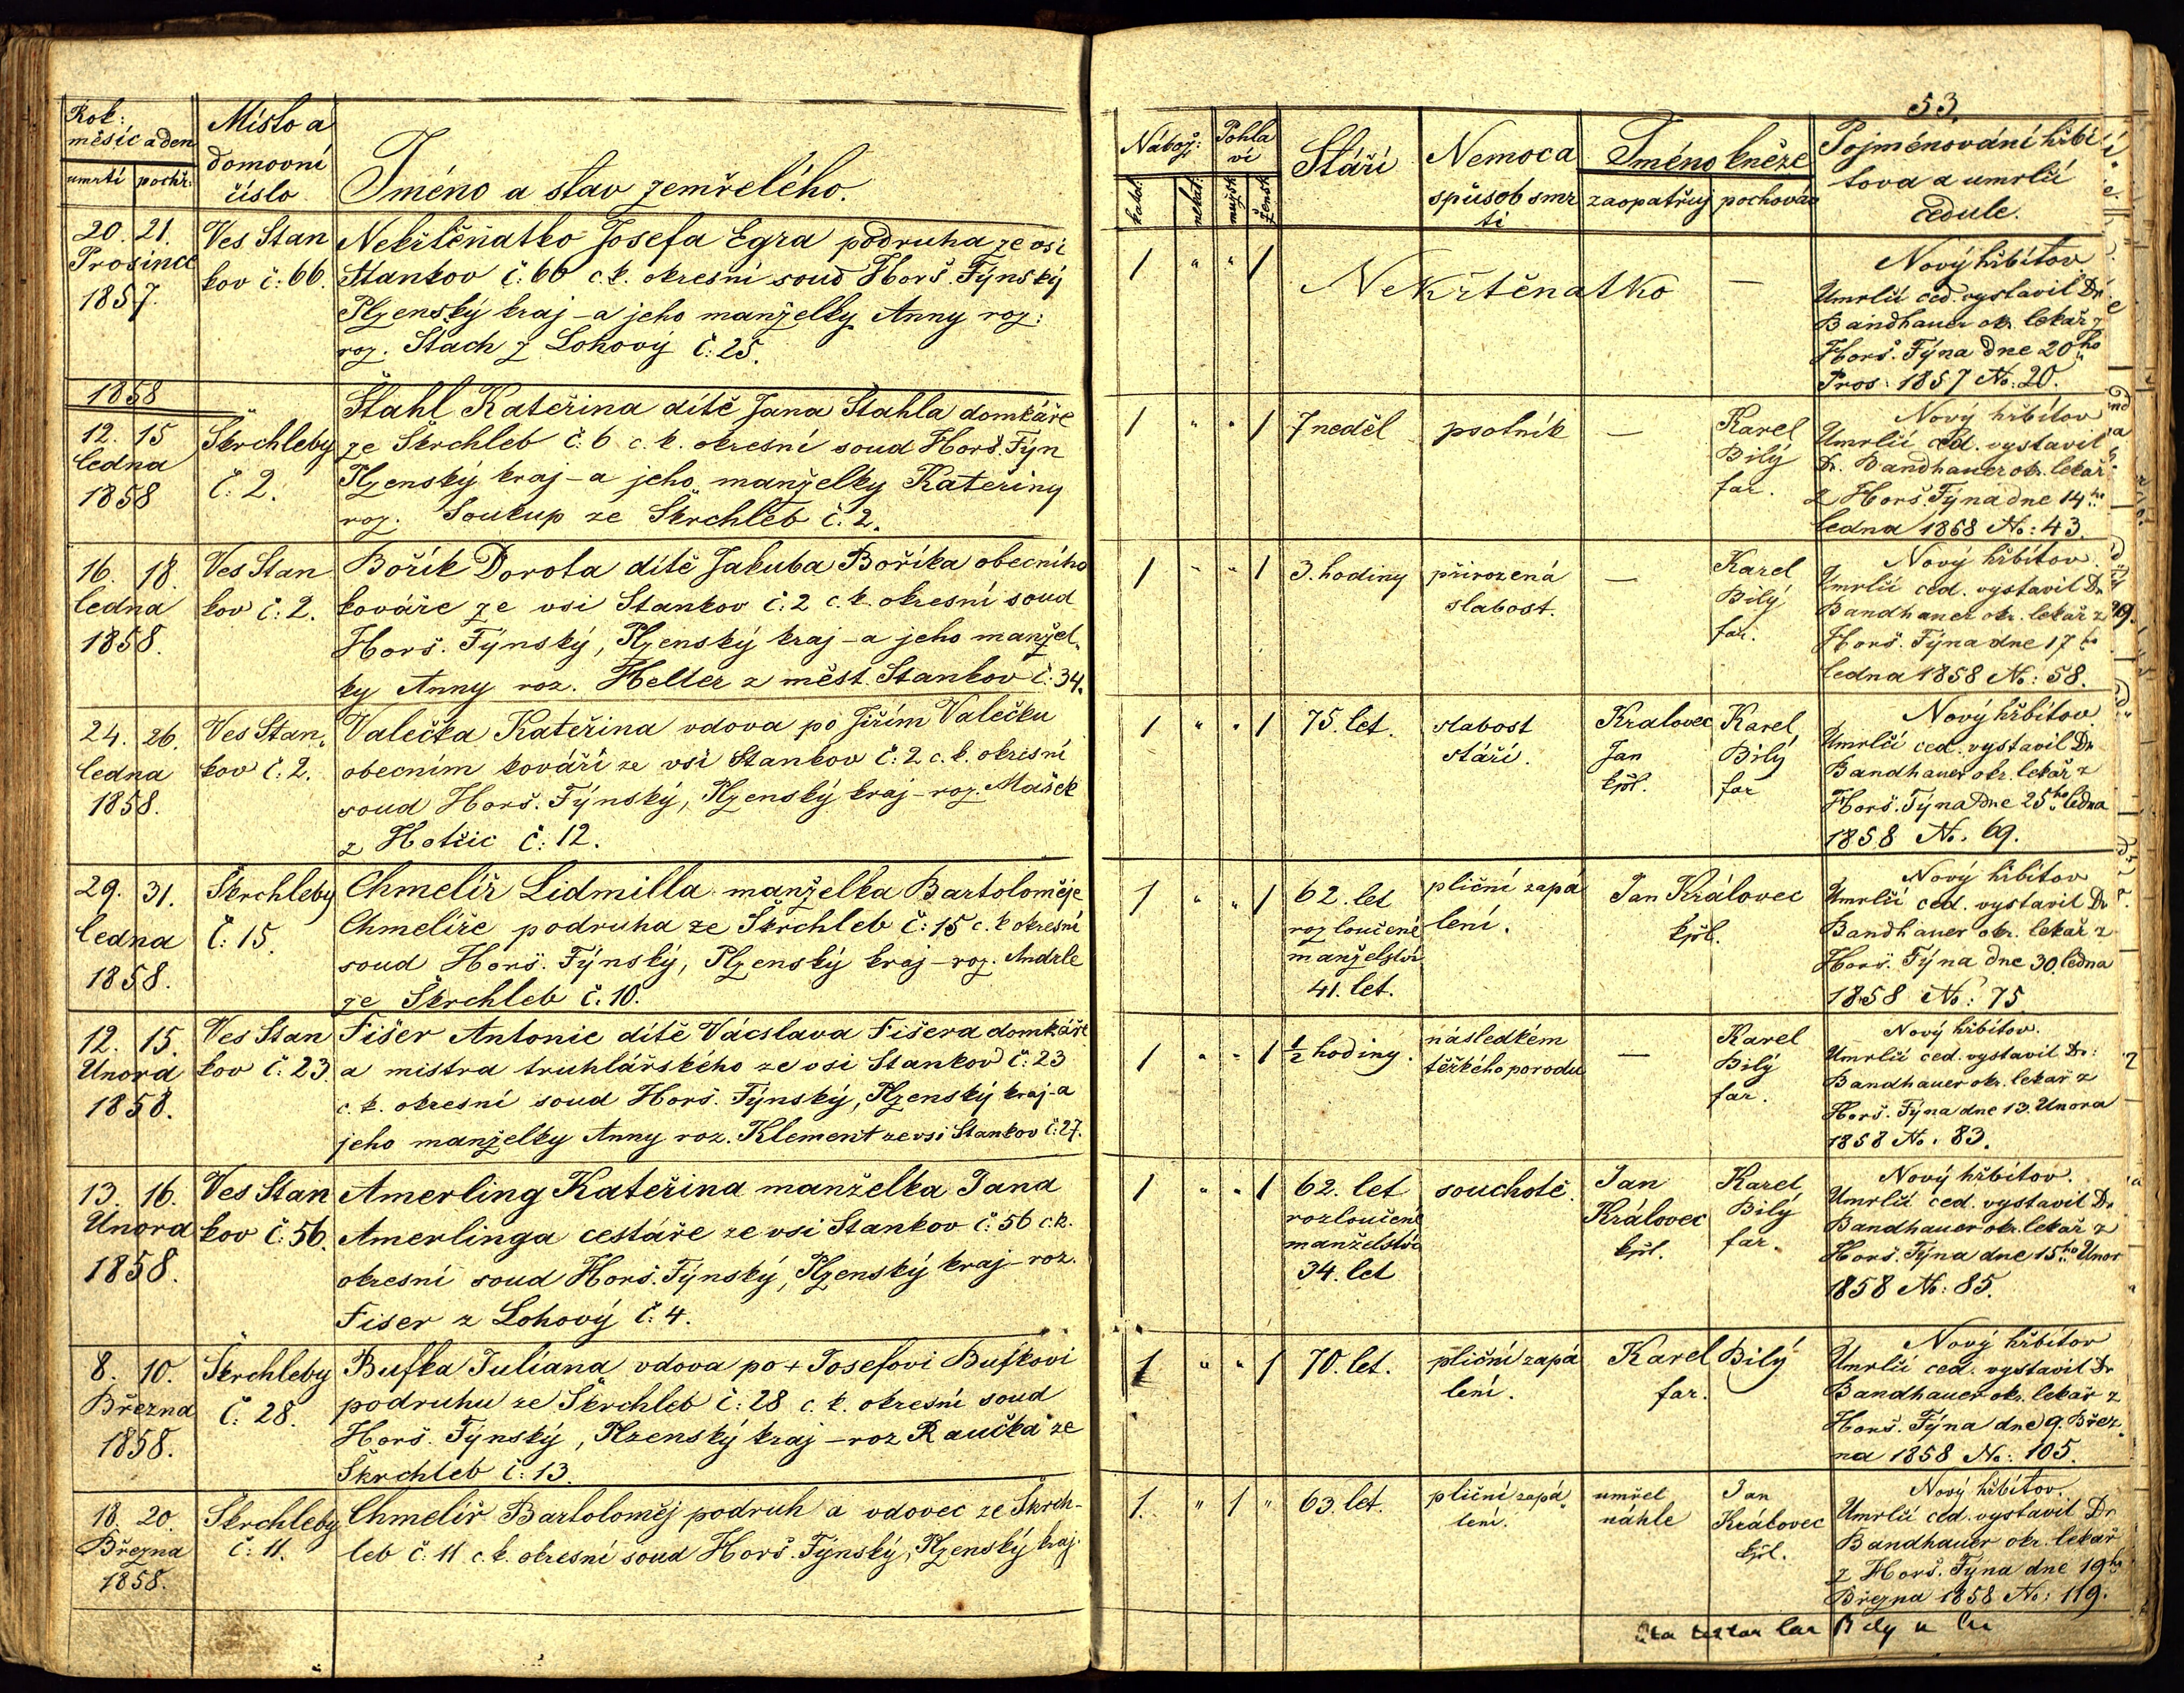 53.
Rok:
měsíc a den
umrtí pochř:
Místo a
domovní
číslo
Jméno a stav zemřelého.
Nábož:
katol:
nekat:
Pohla
ví
mužsk
žensk
Stáří
Nemoc a
způsob smr
ti
Jméno kněze
zaopatřuj pochováv
Pojménování hřbi
tova a umrlčí
cedule.
20. 21.
Prosince
1857.
Ves Stan
kov č: 66.
Nekřtěňatko Josefa Egra podruha ze vsi
Stankov č: 66 c. k. okresní soud Horš. Týnský
Plzenský kraj - a jeho manželky Anny roz:
roz. Stach z Lohový č: 25.
1 " " 1
Nekřtěnatko —
Nový hřbitov
Umrlčí ced. vystavil Dr
Bandhauer okr. lekař z
Horš. Týna dne 20ho
Pros: 1857 No: 20.
1858
12. 15
ledna
1858
Škrchleby
č: 2.
Stahl Kateřina dítě Jana Stahla domkáře
ze Škrchleb č: 6 c. k. okresní soud Horš. Týn
Plzenský kraj - a jeho manželky Kateřiny
roz. Soukup ze Škrchleb č: 2.
1 " " 1
7 neděl
psotník
—
Karel
Bílý
far.
Nový hřbitov
Umrlčí ced. vystavil
Dr. Bandhauer okr. lekař
z Horš. Týna dne 14ho
ledna 1858 No: 43.
16. 18.
ledna
1858.
Ves Stan
kov č: 2.
Bořík Dorota dítě Jakuba Boříka obecního
kováře ze vsi Stankov č: 2 c. k. okresní soud
Horš. Týnský, Plzenský kraj - a jeho manžel„
ky Anny roz. Heller z měst. Stankov č: 34.
1 " " 1
3. hodiny
přirozená
slabost.
—
Karel
Bílý
far.
Nový hřbitov.
Umrlčí ced. vystavil Dr
Bandhauer okr. lekař z
Horš. Týna dne 17ho
ledna 1858 No: 58.
24. 26.
ledna
1858.
Ves Stan„
kov č: 2.
Valečka Kateřina vdova po Jiřím Valečku
obecním kováři ze vsi Stankov č: 2 c. k. okresní
soud Horš. Týnský, Plzenský kraj - roz. Mašek
z Hotčic č: 12.
1 " " 1
75. let.
slabost
stáří.
Kralovec
Jan
kpl.
Karel
Bílý
far
Nový hřbitov
Umrlčí ced. vystavil Dr
Bandhauer okr. lekař z
Horš. Týna dne 25ho ledna
1858 No. 69.
29. 31.
ledna
1858.
Škrchleby
č: 15.
Chmelíř Lidmilla manželka Bartoloměje
Chmelíře podruha ze Škrchleb č: 15 c. k okresní
soud Horš. Týnský, Plzenský kraj - roz. Andrle
ze Škrchleb č. 10.
1 " " 1
62. let
rozloučené
manželství
41. let.
pliční zapá
lení.
Jan Královec
kpl.
Nový hřbitov
Umrlčí ced. vystavil Dr
Bandhauer okr. lekař z
Horš. Týna dne 30. ledna
1858 No: 75
12. 15.
Unora
1858.
Ves Stan
kov č: 23.
Fišer Antonie dítě Vácslava Fišera domkáře
a mistra truhlářského ze vsi Stankov č: 23
c. k. okresní soud Horš. Týnský, Plzenský kraj - a
jeho manželky Anny roz. Klement ze vsi Stankov č: 27.
1 " " 1
½ hodiny.
následkém
těžkého porodu
—
Karel
Bílý
far.
Nový hřbitov.
Umrlčí ced. vystavil Dr:
Bandhauer okr. lekař z
Horš. Týna dne 13. Unora
1858 No. 83.
13. 16.
Unora
1858.
Ves Stan
kov č: 56.
Amerling Kateřina manželka Jana
Amerlinga cestáře ze vsi Stankov č: 56 c. k.
okresní soud Horš. Týnský, Plzenský kraj - roz.
Fiser z Lohový č: 4.
1 " " 1
62. let
rozloučené
manželství
34. let
souchotě.
Jan
Královec
kpl.
Karel
Bílý
far.
Nový hřbitov.
Umrlčí ced. vystavil Dr
Bandhauer okr. lekař z
Horš. Týna dne 15ho Unor
1858 No: 85.
8. 10.
Března
1858.
Škrchleby
č: 28.
Bufka Juliana vdova po + Josefovi Bufkovi
podruhu ze Škrchleb č: 28 c. k. okresní soud
Horš. Týnský, Plzenský kraj - roz Raučka ze
Škrchleb č: 13.
1 " " 1
70. let.
pliční zapá
lení.
Karel Bílý
far.
Nový hřbitov
Umrlčí ced. vystavil Dr
Bandhauer okr. lekař z
Horš. Týna dne 9. Břez„
na 1858 No: 105.
18. 20.
Března
1858.
Škrchleby
č: 11.
Chmelíř Bartoloměj podruh a vdovec ze Škrch-
leb č: 11 c. k. okresní soud Horš. Týnský, Plzenský kraj.
1. " 1 "
63. let.
pliční zapá„
lení.
umřel
náhle
Jan
Královec
kpl.
Nový hřbitov.
Umrlčí ced. vystavil Dr
Bandhauer okr. lekař
z Horš. Týna dne 19ho
Března 1858 No: 119.